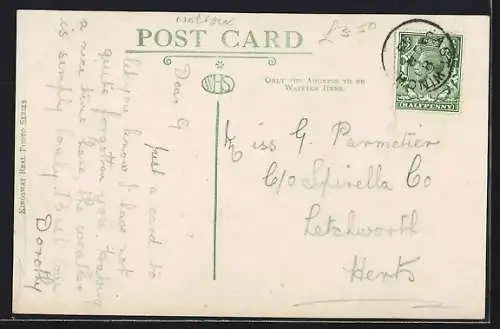 Norfolk
£3.50
POST CARD
WHS
ONLY THE ADDRESS TO BE
WRITTEN HERE.
HALFPENNY
KINGSWAY REAL PHOTO SERIES
Dear G
Just a card to
let you know I have not
quite forgotten you. Having
a nice time here the weather
is simply lovely. Best love
Dorothy
Miss G. Parmetier
C/o Spirella Co
Letchworth
Herts